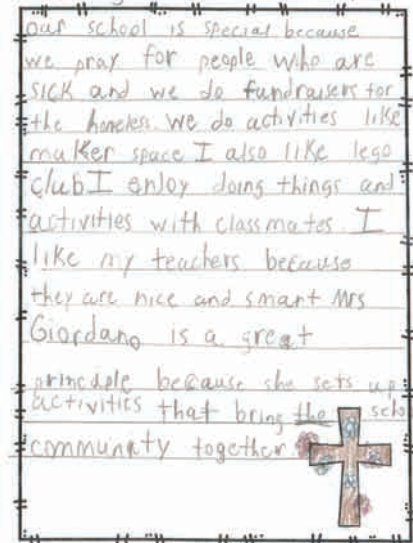 our school is special because
we pray for people who are
sick and we do fundraisers for
the homeless. we do activities like
maker space I also like lego
club I enjoy doing things and
activities with classmates. I
like my teachers because
they are nice and smart Mrs
Giordano is a great
principle because she sets up
activities that bring the scho
community together